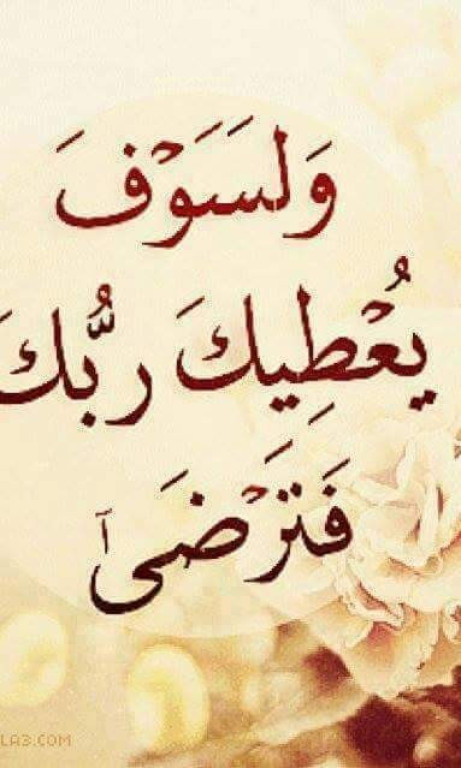 وَلَسَوْفَ
يُعْطِيكَ رَبُّكَ
فَتَرْضَىٰٓ
LA3.COM